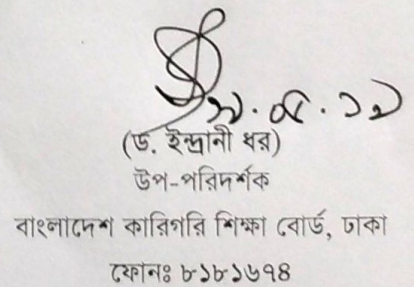 (ড. ইন্দ্রানী ধর)
উপ-পরিদর্শক
বাংলাদেশ কারিগরি শিক্ষা বোর্ড, ঢাকা
ফোনঃ ৮১৮১৬৭৪